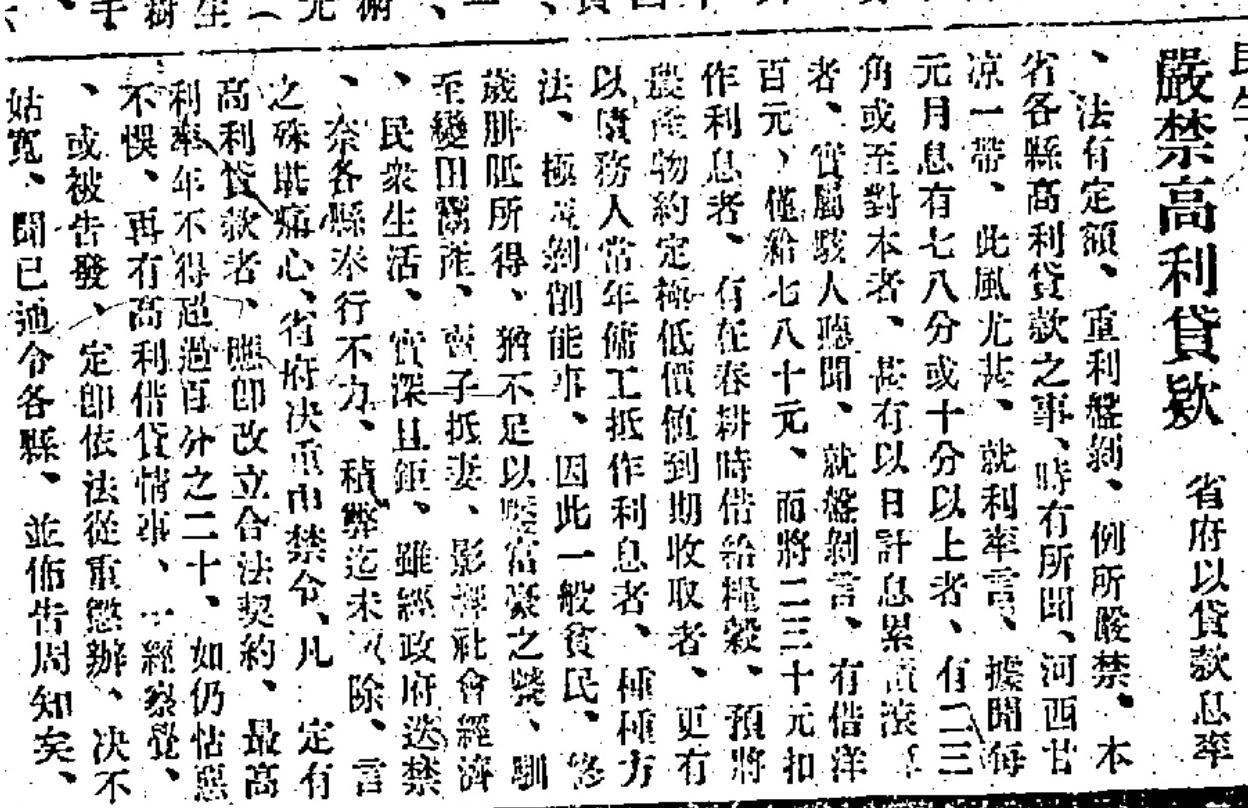 嚴禁高利貸欵
省府以貸款息率
、法有定額、重利盤剝、例所嚴禁、本
省各縣高利貸款之事、時有所聞、河西甘
凉一帶、此風尤甚、就利率言、據聞每
元月息有七八分或十分以上者、有二三
角或至對本者、甚有以日計息累 滾
者、實屬駭人聽聞、就盤剝言、有借洋
百元、僅給七八十元、而將二三十元扣
作利息者、有在春耕時借給糧穀、預將
農產物約定極低價值到期收取者、更有
以債務人常年傭工抵作利息者、種種方
法、極 剝削能事、因此一般貧民、終
歲胼胝所得、猶不足以 富豪之 、馴
至變田鬻產、賣子抵妻、影響社會經濟
、民衆生活、實深且鉅、雖經政府迭禁
、奈各縣奉行不力、積弊迄未 除、言
之殊堪痛心、省府决重申禁令、凡 定有
高利貸款者、應卽改立合法契約、最高
利率年不得超過百分之二十、如仍怙惡
不悛、再有高利借貸情事、一經察覺、
、或被告發、定卽依法從重懲辦、决不
姑寬、聞已通令各縣、並佈告周知矣、